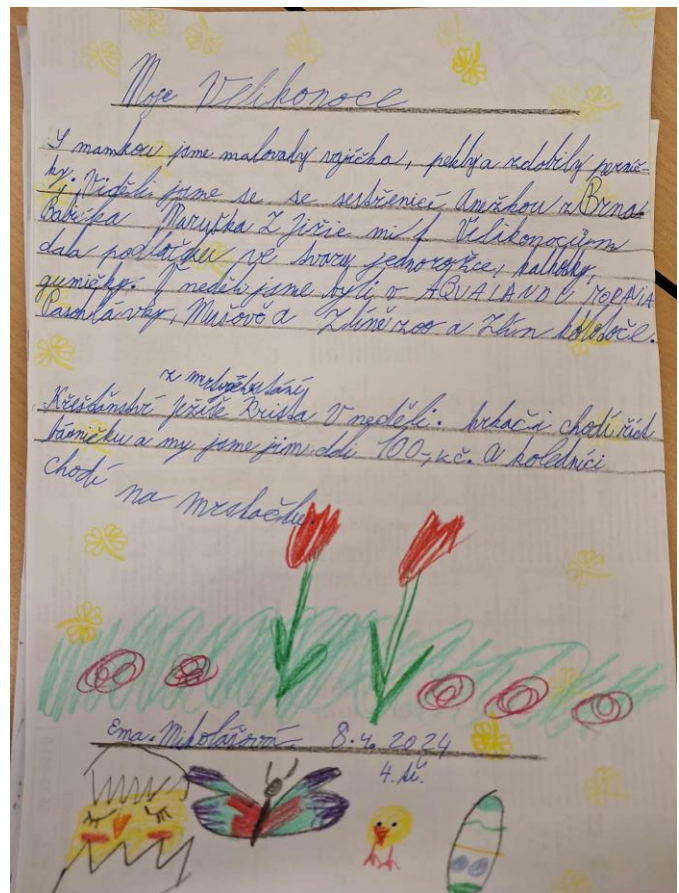 Moje Velikonoce
S mamkou jsme malovaly vajíčka, pekly a zdobily perníč-
ky. Viděli jsme se se sestřenicí Anežkou z Brna
Babička Maruška z Jiřic mi k Velikonocům
dala podložku ve tvaru jednorožce, kalhotky,
gumičky. V neděli jsme byli v AQUALANDU MORAVIA
Pasohlávky, Mušově a Zlíně zoo a Zlín kolotoče.
z mrtvých
Křesťanství Ježíše Krista V neděli. hrkači chodí říct
básničku a my jsme jim dali 100,-kč. A koledníci
chodí na mrskačku.
Ema Mikolášová 8.4.2024
4. tř.